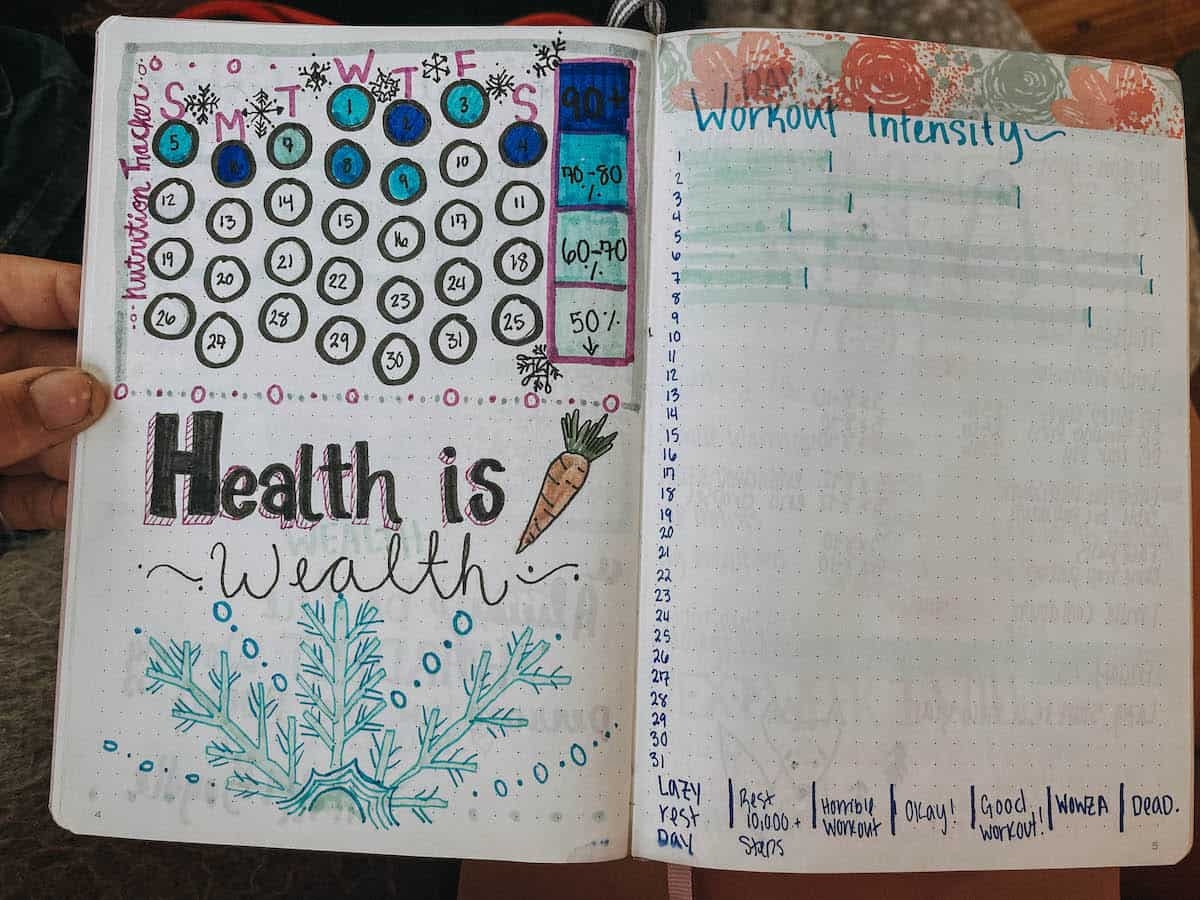 Nutrition Tracker
S M T W T F S
1 2 3 4
5 6 7 8 9 10 11
12 13 14 15 16 17 18
19 20 21 22 23 24 25
26 27 28 29 30 31
90+
70-80
%
60-70
%
50%
↓
Health is
Wealth
4
Workout Intensity
1
2
3
4
5
6
7
8
9
10
11
12
13
14
15
16
17
18
19
20
21
22
23
24
25
26
27
28
29
30
31
Lazy
rest
Day
Rest
10,000+
Steps
Horrible
Workout
Okay!
Good
Workout!
WOWZA
Dead.
5